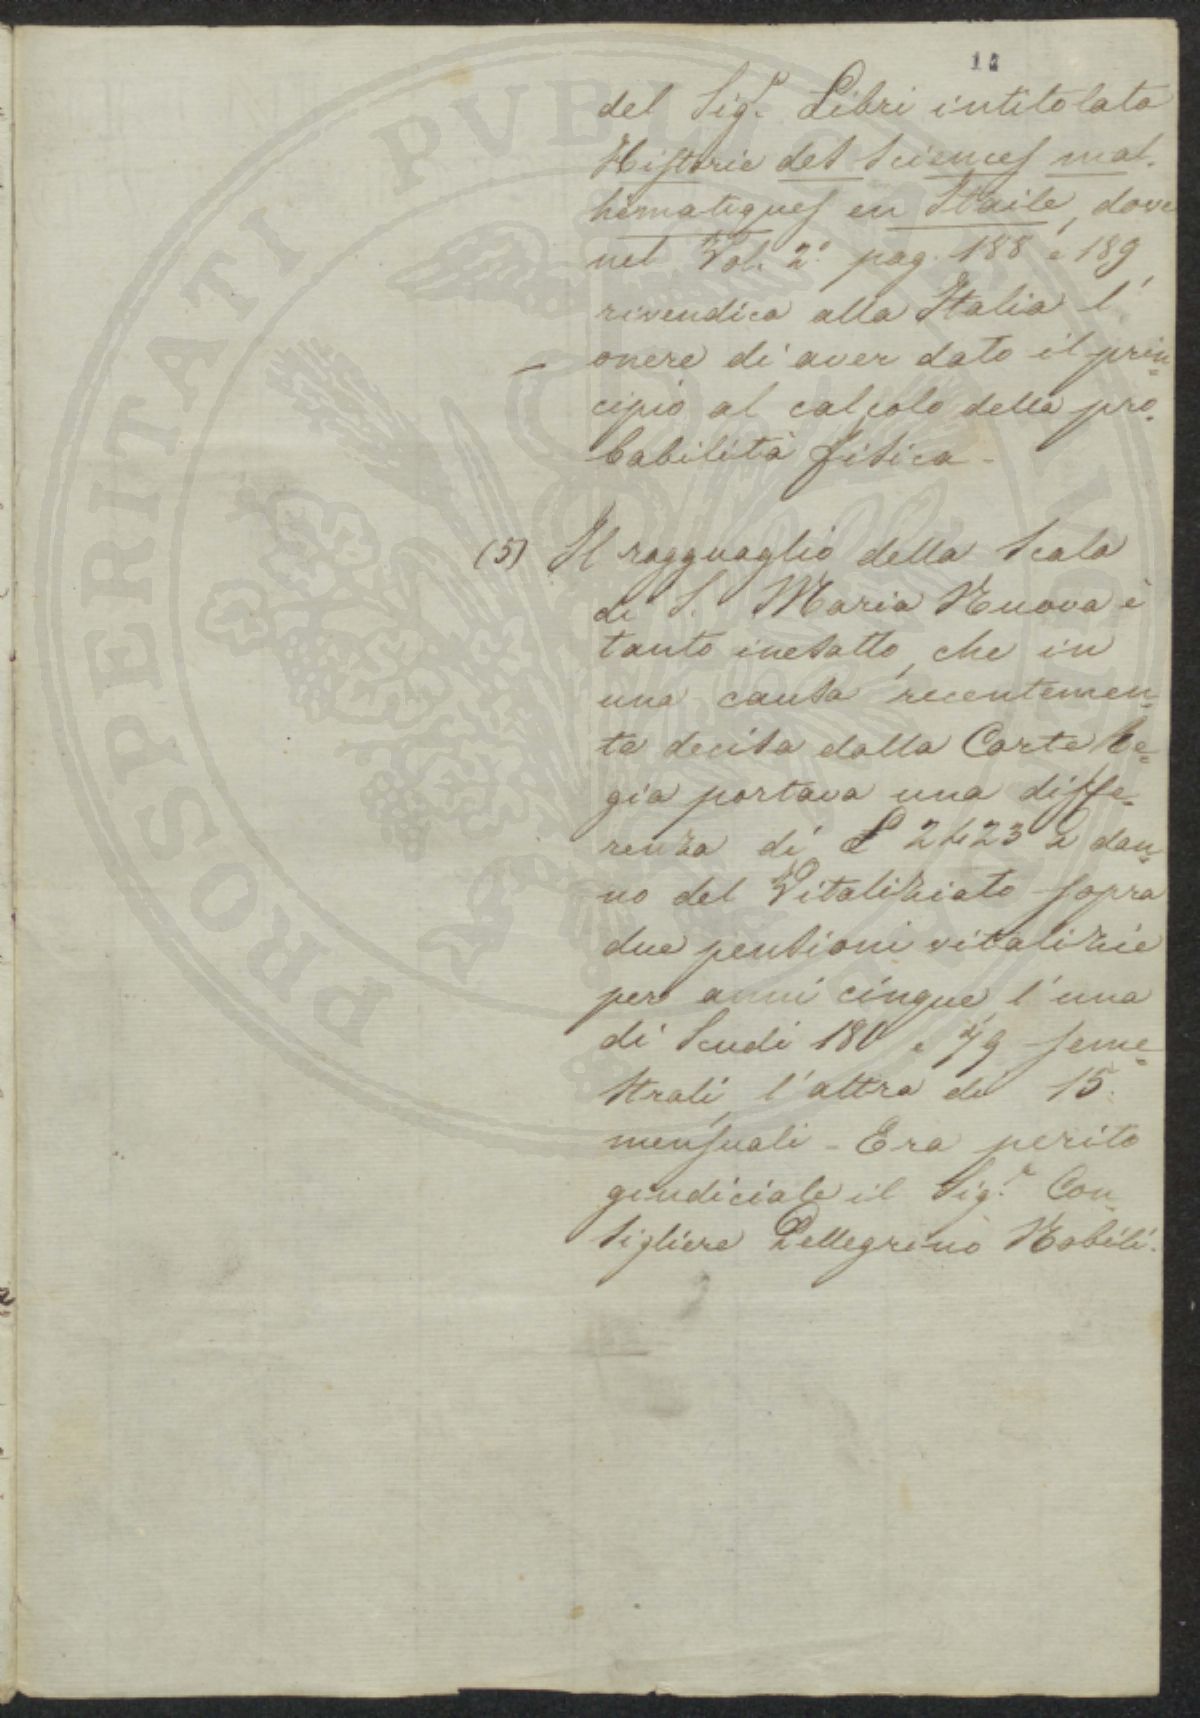 12
del Sig.r Libri intitolata
Historie des Sciences mat-
hematiques en Itaile, dove
nel Vol. 2° pag. 188 e 189
rivendica alla Italia l'
onere di aver dato il prin=
cipio al calcolo della pro=
babilità fisica -
(5) Il ragguaglio della Scala
di S. Maria Nuova è
tanto inesatto, che in
una causa recentemen=
te decisa dalla Corte Re=
gia portava una diffe=
renza di £ 2423 a dan=
no del Vitaliziato sopra
due pensioni vitalizie
per anni cinque l'una
di Scudi 180 e 79 seme=
strali, l'altra di 15
mensuali - Era perito
giudiciale il Sig.r Con=
sigliere Pellegrino Nobili.
PROSPERITATI PVBLICAE